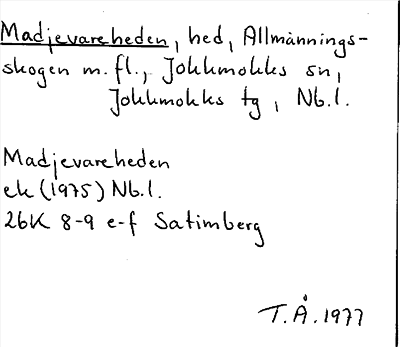 Madjevareheden, hed, Allmännings-
skogen m.fl., Jokkmokks sn,
Jokkmokks tg, Nb.l.
Madjevareheden
ek (1975) Nb.l.
26K 8-9 e-f Satimberg
T.Å. 1977